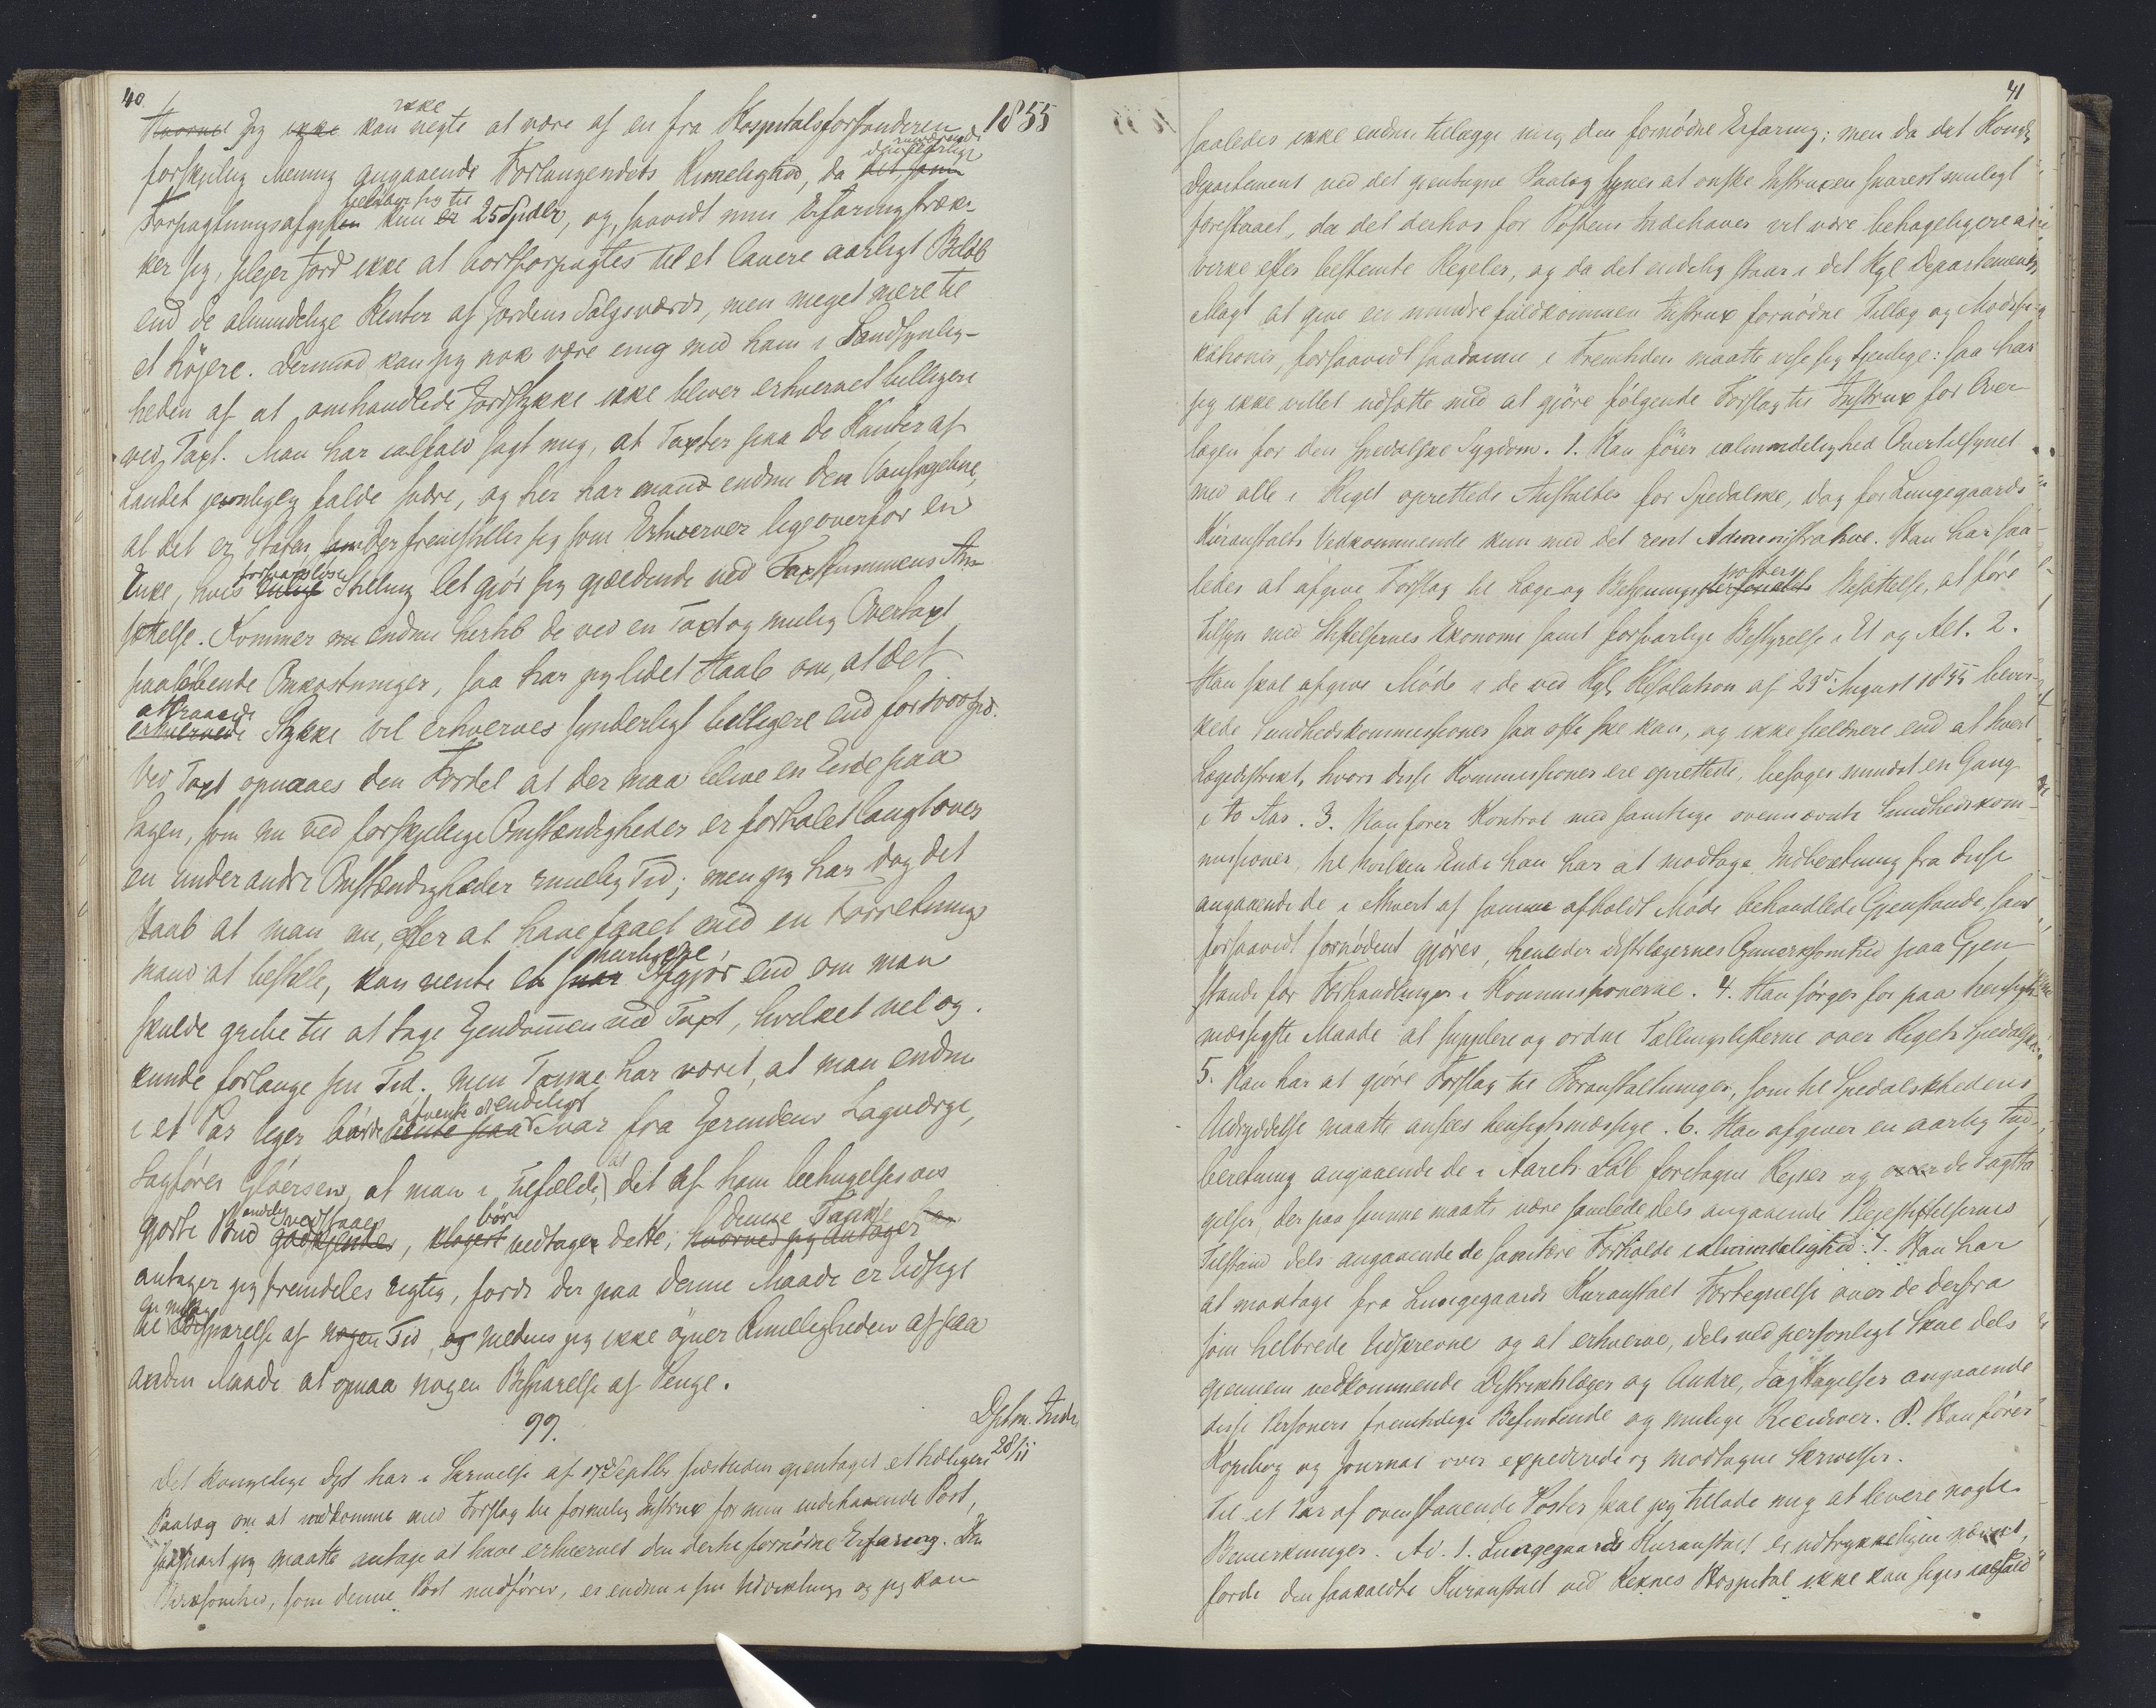 40
1855
Jeg ikke kan negte at være af en fra Hospitalsforstanderen
forskjellig Mening angaaende Forlangendets Rimelighed, da den aarlige nuværende
Forpagtningsafgift kun beløber sig til 25 Spdlr, og, saavidt min Erfaring stræk-
ker sig, plejer Jord ikke at bortforpagtes til et lavere aarligt Beløb
end de almindelige Renter af Jordens Salgsværdi, men meget mere til
et højere. Derimod kan jeg nok være enig med ham i Sandsynlig-
heden af at omhandlede Jordstykke ikke bliver erhvervet billigere
ved Taxt. Man har ialfald sagt mig, at Taxter paa de Kanter af
Landet jevnligen falde svære, og her har man endnu den Vanskjebne,
at det er Staten, der fremstiller sig som Erhverver ligeoverfor en
Enke, hvis forsvarsløse Stilling let gjør sig gjældende ved Taxtsummens An-
sættelse. Kommer nu endnu hertil de ved en Taxt og mulig Overtaxt
paaløbende Omkostninger, saa har jeg lidet Haab om, at det
attraaede Stykke vil erhverves synderligt billigere end for 1000 Spd.
Ved Taxt opnaaes den Fordel at der maa blive en Ende paa
Sagen, som nu ved forskjellige Omstændigheder er forhalet langt over
en under andre Omstændigheder rimelig Tid; men jeg har dog det
Haab at man nu, efter at have faaet med en Forretnings
mand at bestille, kan vente en hurtigere Afgjør end om man
skulde gribe til at tage Ejendommen ved Taxt, hvilket vel og
kunde forlange sin Tid. Min Tanke har været, at man endnu
i et Par Uger burde afvente et endeligt Svar fra Eierindens Lagværge,
Sagfører Gløersen, at man i Tilfælde, at det af ham betingelsesvis
gjorte Bud endelig vedstaaes, bør vedtage dette, denne Tanke
antager jeg fremdeles rigtig, fordi der paa denne Maade er Udsigt
til en mulig Besparelse af Tid, medens jeg ikke øjner Rimeligheden af paa
anden Maade at opnaa nogen Besparelse af Penge.
99.
Dptm. Indr.
28/11
Det kongelige Dpt har i Skrivelse af 17de Septbr sidstleden gjentaget et tidligere
Paalæg om at indkomme med Forslag til formelig Instrux for min indehavende Post,
saasnart jeg maatte antage at have erhvervet den dertil fornødne Erfaring. Den
Virksomhed, som denne Post medfører, er endnu i sin Udvikling, og jeg kan
41
saaledes ikke endnu tillægge mig den fornødne Erfaring; men da det Kongl.
Departement ved det gjentagne Paalæg synes at ønske Instruxen snarest muligt
forestaaet, da det derhos for Postens Indehaver vil være behageligere at
virke efter bestemte Regeler, og da det endelig staar i det Kgl Departements
Magt at give en mindre fuldkommen Instrux fornødne Tillæg og Modifi-
kationer, forsaavidt saadanne i Fremtiden maatte vise sig tjenlige: saa har
jeg ikke villet udsætte med at gjøre følgende Forslag til Instrux for Over-
lægen for den spedalske Sygdom. 1. Han fører i almindelighed Overtilsynet
med alle i Riget oprettede Anstalter for Spedalske, dog for Lungegaards
Kuranstalts Vedkommende kun med det rent Administrative. Han har saa-
ledes at afgive Forslag til Læge og Betjeningsposters Besættelse, at føre
Tilsyn med Stiftelsernes Økonomi samt forsvarlige Bestyrelse i Et og Alt. 2.
Han skal afgive Møde i de ved Kgl. Resolution af 23de August 1855 bevir-
kede Sundhedskommissioner saa ofte ske kan, og ikke sjeldnere end at hvert
Lægedistrikt, hvori disse Kommissioner ere oprettede, besøges mindst en Gang
i to Aar. 3. Han fører Kontrol med samtlige ovennævnte Sundhedskom-
missioner, til hvilken Ende han har at modtage Indberetning fra disse
angaaende de i ethvert af samme afholdt Møde behandlede Gjenstande, samt
forsaavidt fornødent gjøres, henleder Distrlægernes Opmærksomhed paa Gjen-
stande for Forhandlinger i Kommissionerne. 4. Han sørger for paa hensigts-
mæssigste Maade at supplere og ordne Tællingslisterne over Rigets Spedalske.
5. Han har at gjøre Forslag til Foranstaltninger, som til Spedalskhedens
Udryddelse maatte ansees hensigtsmæssige. 6. Han afgiver en aarlig Ind-
beretning angaaende de i Aarets Løb foretagne Rejser og over de Iagtta-
gelser, der paa samme maatte være samlede dels angaaende Plejestiftelsernes
Tilstand dels angaaende de sanitære Forholde i almindelighed. 7. Han har
at modtage fra Lungegaards Kuranstalt Fortegnelse over de derfra
som helbrede Udskrevne og at erhverve, dels ved personligt Skue dels
gjennem vedkommende Distriktslæger og Andre, Iagttagelser angaaende
disse Personers fremtidige Befindende og mulige Recidiver. 8. Han fører
Kopibog og Journal over expederede og modtagne Skrivelser.
Til et Par af ovenstaaende Poster skal jeg tillade mig at levere nogle
Bemerkninger. Ad. 1. Lungegaards Kuranstalt er udtrykkeligen nævnt,
fordi den saakaldte Kuranstalt ved Reknes Hospital ikke kan siges ialfald